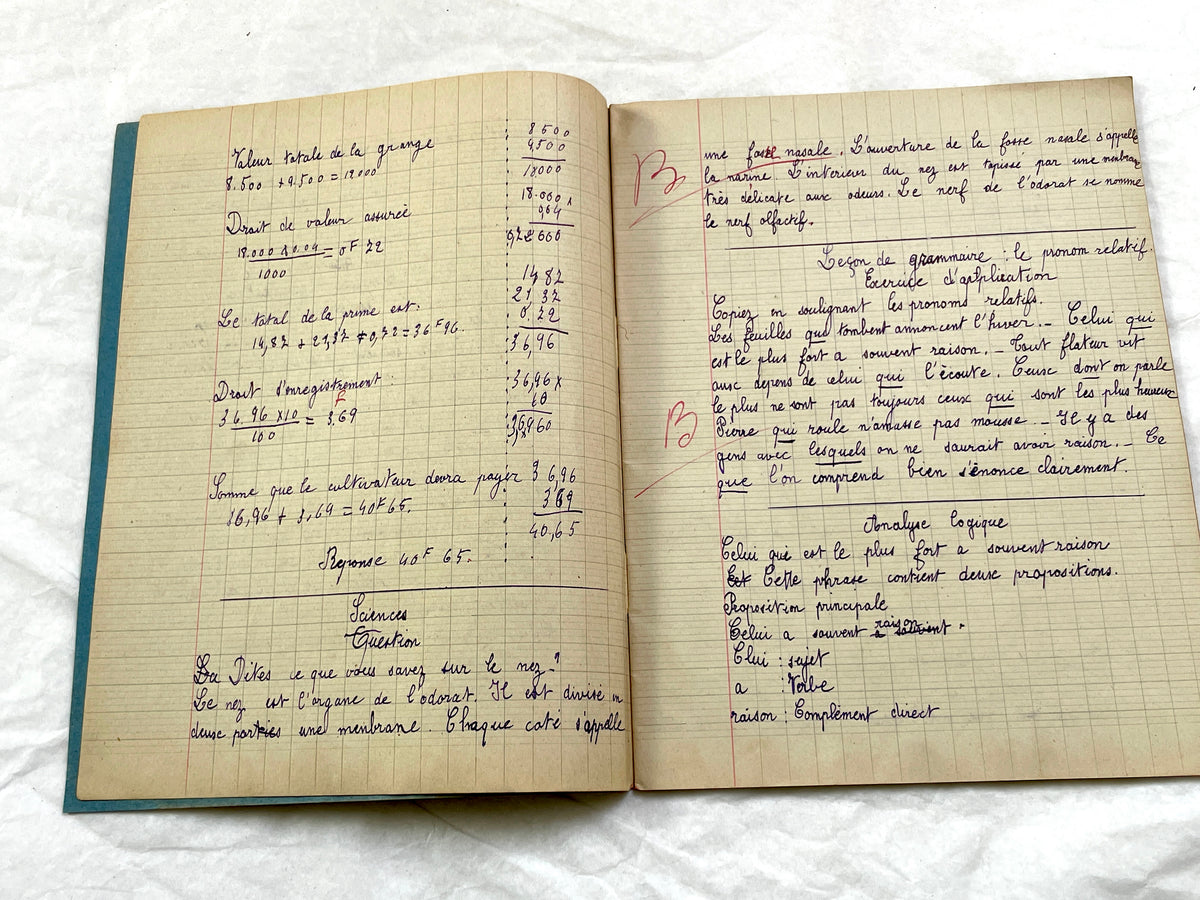 Valeur totale de la grange
8.500 + 9.500 = 18000
Droit de valeur assurée
18.000 x 0.04 = 0F 72
1000
Le total de la prime est:
14,87 + 21,37 + 0,72 = 36F 96.
Droit d'enregistrement :
F
36.96 x 10 = 3.69
100
Somme que le cultivateur devra payer
36,96 + 3,69 = 40F 65.
Réponse 40F 65.
8500
9500
18000
18.000 x
0,72000
14,87
21,37
0,72
36,96
36,96 x
10
36,96
369
40,65
Sciences
Question
Dites ce que vous savez sur le nez ?
Le nez est l'organe de l'odorat. Il est divisé en
deux parties une menbrane. Chaque coté s'appelle
B
une fosse nasale. L'ouverture de la fosse nasale s'appelle
la narine. L'intérieur du nez est tapissé par une menbrane
très délicate aux odeurs. Le nerf de l'odorat se nomme
le nerf olfactif.
Leçon de grammaire : le pronom relatif.
Exercice d'application
Copiez en soulignant les pronoms relatifs.
Les feuilles que tombent annoncent l'hiver. _ Celui qui
est le plus fort a souvent raison. _ Tout flateur vit
aux depens de celui qui l'écoute. Ceux dont on parle
le plus ne sont pas toujours ceux qui sont les plus heureux
B
Pierre qui roule n'amasse pas mousse. _ Il y a des
gens avec lesquels on ne saurait avoir raison. _ Ce
que l'on comprend bien s'énonce clairement.
Analyse logique
Celui qui est le plus fort a souvent raison
Cette phrase contient deux propositions.
Proposition principale
Celui a souvent raison.
Clui : sujet
a : Verbe
raison : Complément direct